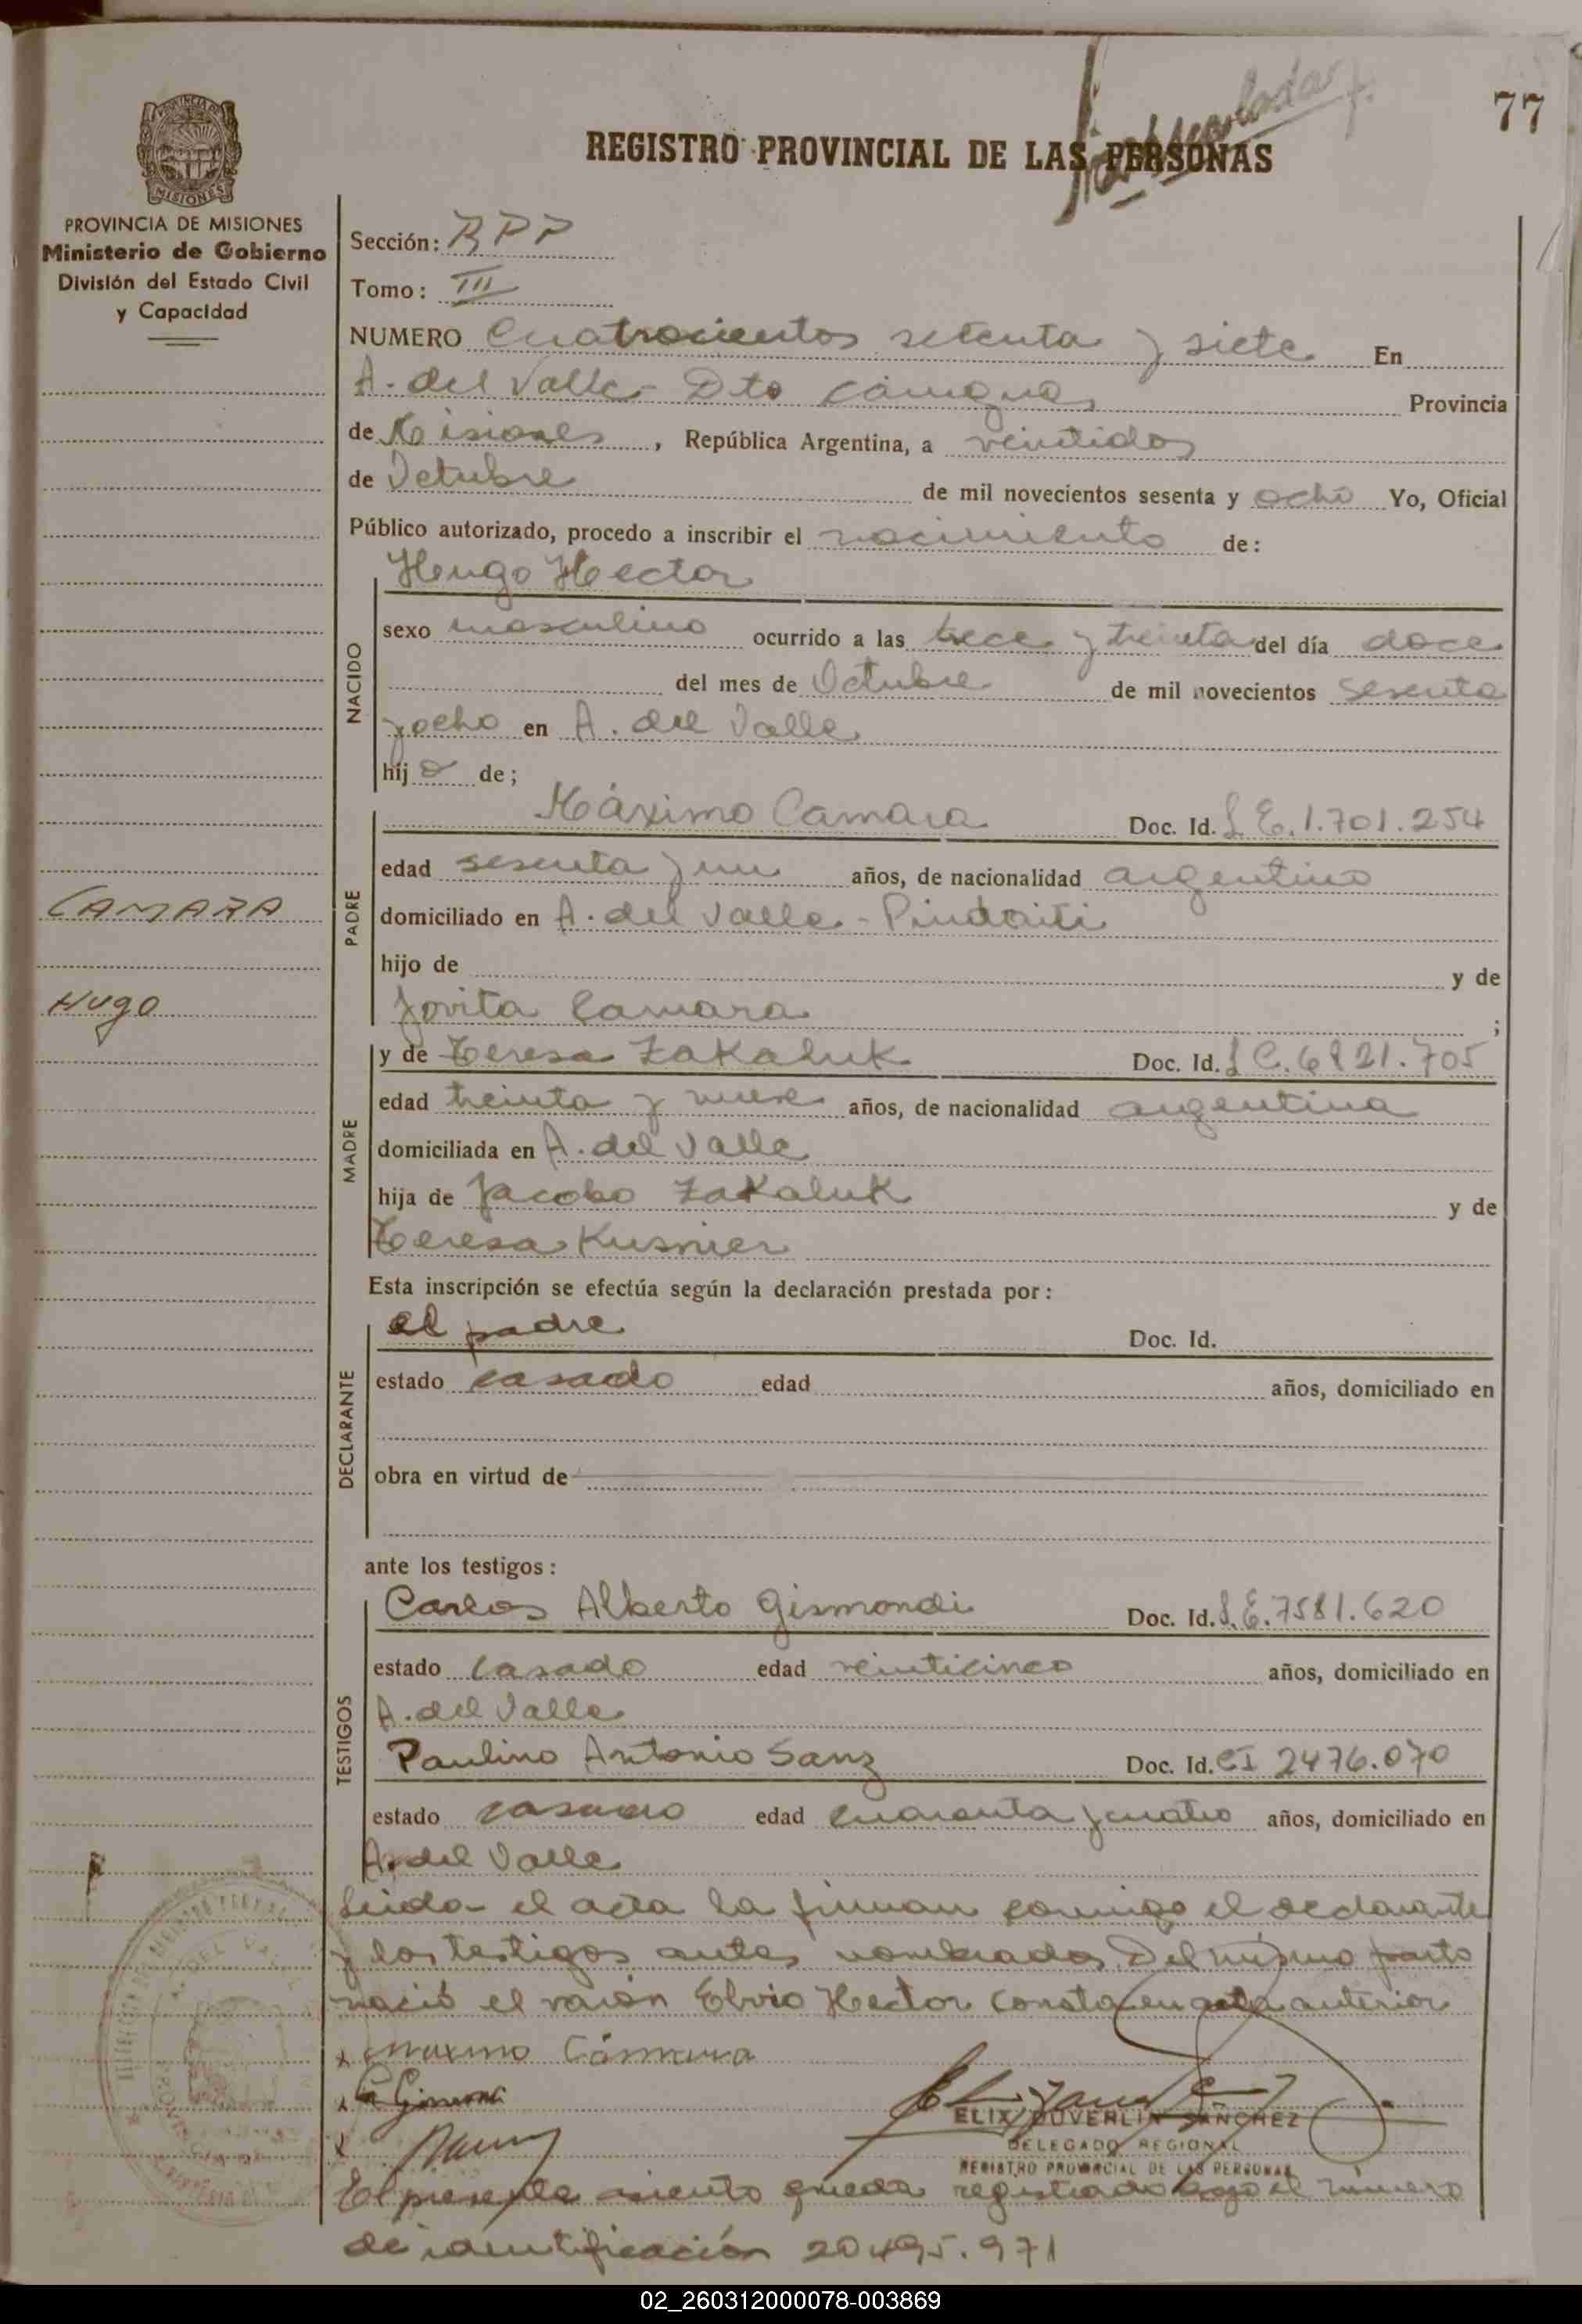 77
REGISTRO PROVINCIAL DE LAS PERSONAS
PROVINCIA DE MISIONES
Ministerio de Gobierno
División del Estado Civil
y Capacidad
Sección: RPP
Tomo: III
NUMERO Cuatrocientos setenta y siete En
A. del Valle - Dto Cainguas Provincia
de Misiones, República Argentina, a veintidos
de Octubre de mil novecientos sesenta y ocho Yo, Oficial
Público autorizado, procedo a inscribir el nacimiento de:
Hugo Hector
NACIDO
sexo masculino ocurrido a las trece y treinta del día doce
del mes de Octubre de mil novecientos sesenta
y ocho en A. del Valle
hijo de;
Máximo Camara Doc. Id. L.E. 1.701.254
PADRE
edad sesenta y un años, de nacionalidad argentino
CAMARA
domiciliado en A. del Valle - Pindaiti
hijo de y de
Hugo
Jovita Camara ;
y de Teresa Zakaluk Doc. Id. L C. 6821.705
MADRE
edad treinta y nueve años, de nacionalidad argentina
domiciliada en A. del Valle
hija de Jacobo Zakaluk y de
Teresa Kusnier
Esta inscripción se efectúa según la declaración prestada por:
el padre Doc. Id.
DECLARANTE
estado casado edad años, domiciliado en
obra en virtud de
ante los testigos:
Carlos Alberto Gismondi Doc. Id. L.E. 7581.620
TESTIGOS
estado casado edad veinticinco años, domiciliado en
A. del Valle
Paulino Antonio Sanz Doc. Id. CI 2476.070
estado casado edad cuarenta y cuatro años, domiciliado en
A. del Valle
Leida el acta la firman conmigo el declarante
y los testigos antes nombrados. Del mismo parto
nació el varón Elvio Hector consta en acta anterior
x Maximo Cámara
ELIX DUVERLIN SANCHEZ
DELEGADO REGIONAL
REGISTRO PROVINCIAL DE LAS PERSONAS
El presente asiento queda registrado bajo el número
de identificación 20.495.971
02_260312000078-003869